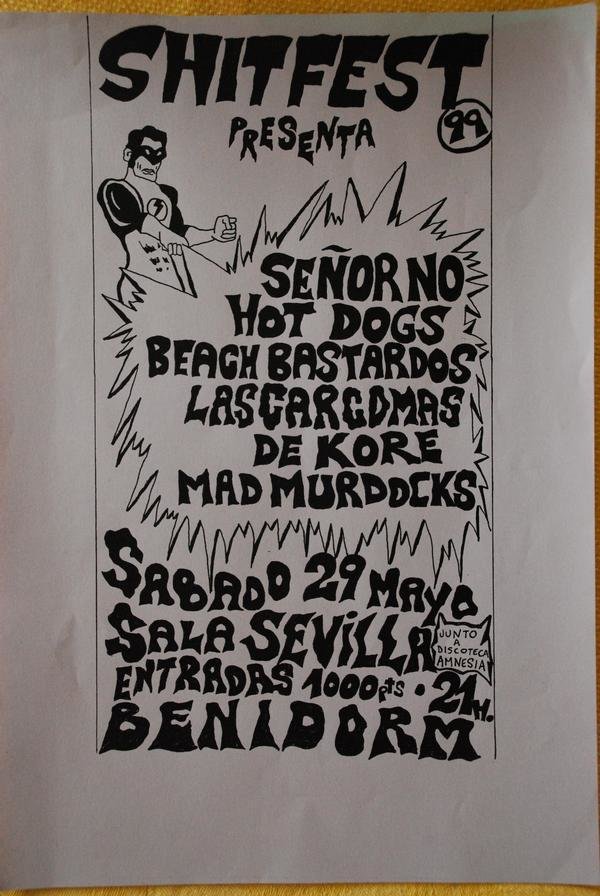 SHITFEST
99
PRESENTA
SEÑOR NO
HOT DOGS
BEACH BASTARDOS
LAS CARCOMAS
DE KORE
MAD MURDOCKS
SABADO 29 MAYO
SALA SEVILLA
JUNTO
A
DISCOTECA
AMNESIA
ENTRADAS 1000 pts · 21 H.
BENIDORM